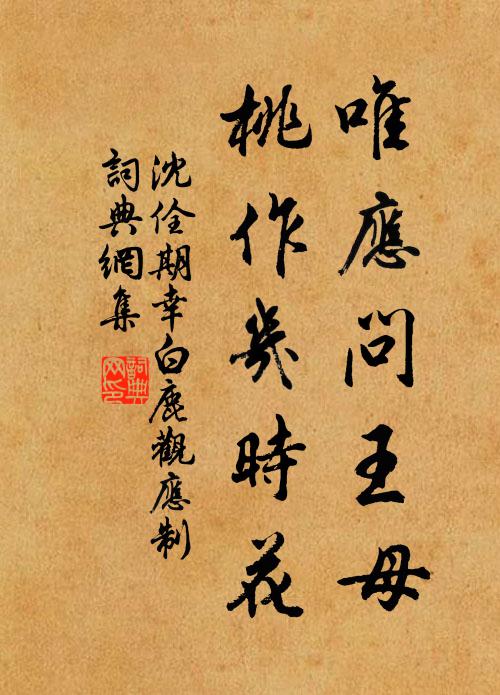 唯應問王母
桃作幾時花
沈佺期幸白鹿觀應制
詞典網集
詞典
网印